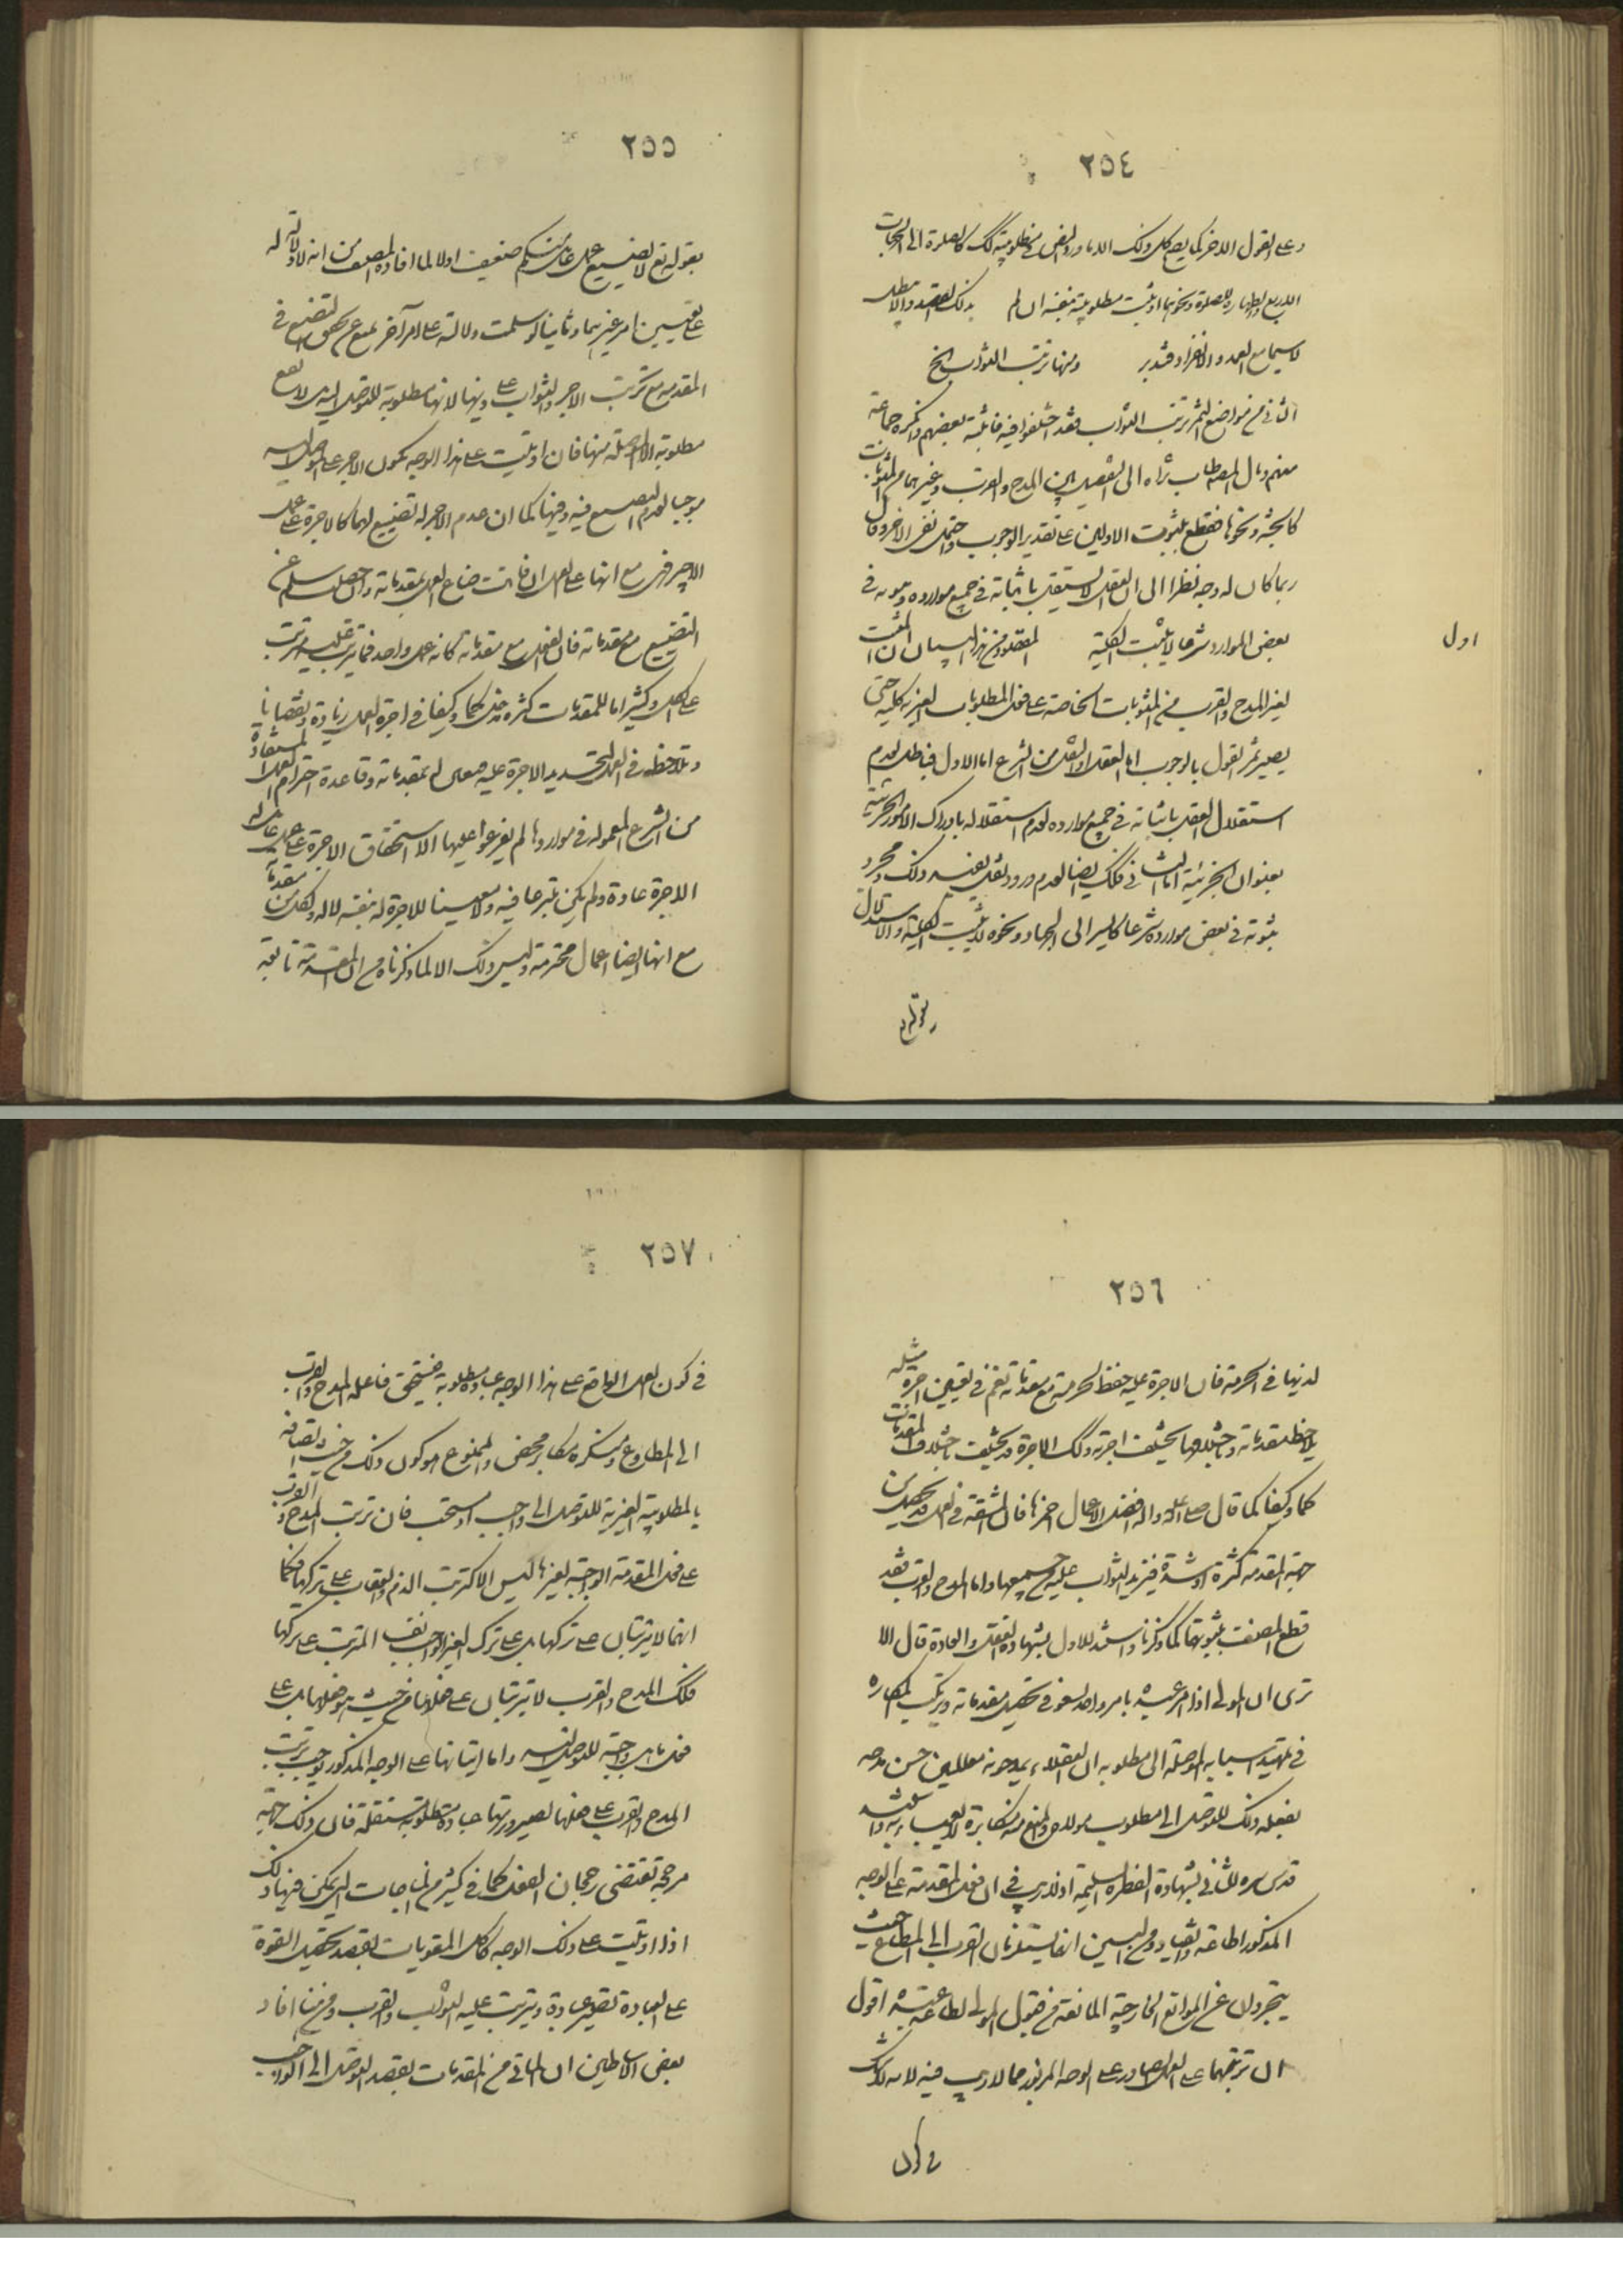 ٢٥٤
وعلى القول الاخر كما يصح كل ذلك الا ما ورد النص في مطلوبيته كذلك كالصلوة الى الجهات
الاربع والطهارة للصلوة ونحوهما اذ يثبت مطلوبيته بنفسه ان لم بذلك القصد والا بطل
لا سيما مع العمد والانفراد فتدبر ومنها ترتب الثواب الخ
الثاني من مواضع الثمر ترتب الثواب فقد اختلفوا فيه فاثبته بعضهم وانكره جماعة
منهم ومال المص طاب ثراه الى التفصيل بين المدح والقرب وغيرهما من المثوبات
كالجنة ونحوها فقطع بثبوت الاولين على تقدير الوجوب واحتمل نفى الاخر وقال
ربما كان له وجه نظرا الى ان العقل لا يستقل باثباته في جميع موارده وثبوته في
بعض الموارد شرعا لا يثبت الكلية المقصود من هذا البيان ان المثبت
اول
لغير المدح والقرب من المثوبات الخاصة على فعل المطلوبات الغيرية كلية حتى
يصير ثمر القول بالوجوب اما العقل او النقل من الشرع اما الاول فباطل لعدم
استقلال العقل باثباته في جميع موارده لعدم استقلاله بادراك الامور الجزئية
بعنوان الجزئية اما الثاني فكك ايضا لعدم ورود نقل يفيد ذلك ومجرد
ثبوته في بعض موارده شرعا كالسير الى الجهاد ونحوه لا يثبت الكلية والاستدلال
بقوله تع
٢٥٥
بقوله تع لا اضيع عمل عامل منكم ضعيف اولا لما افاده المصنف من انه لا دلالة له
على تعيين امر غيرهما وثانيا لو سلمت دلالته على امر آخر نمنع عن تحقق التضييع في
المقدمة مع ترتب الاجر والثواب على ذيها لانها مطلوبة للتوصل اليه بل لا تقع
مطلوبة الا الموصلة منها فان اوتيت على هذا الوجه يكون الاجر على الموصل اليه
موجبا لعدم التضييع فيه وفيها كما ان عدم الاجر له تضييع لهما كالاجرة على عمل
الاجير فهى مع انها على العمل ان فاتت ضاع العمل بمقدماته وان حصلت سلم عن
التضييع مع مقدماته فان الفعل مع مقدماته كانه عمل واحد فما يترتب عليه مترتب
على الكل وكثيرا ما للمقدمات كثرة مدخل كما وكيفا في اجرة العمل زيادة ونقصانا
وتلاحظ في العمل لتحديد الاجرة عليه معاملة بمقدماته وقاعدة احترام العمل المستفادة
من الشرع المعمولة في مواردها لم يفرعوا عليها الا استحقاق الاجرة على عمل عامله
الاجرة عادة ولم يكن متبرعا فيه ولا معينا للاجرة له بنفسه لا له ولكل من مقدماته
مع انها ايضا اعمال محترمة وليس ذلك الا لما ذكرناه من ان المقدمة تابعة
٢٥٦
لذيها في الحرمة فان الاجرة عليه حفظ لحرمته مع مقدماته نعم في تعيين اجرة مثله
يلاحظ مقدماته وباختلافها يختلف اجرته وكك الاجرة قد يختلف باختلاف المقدمات
كما وكيفا كما قال صلى الله عليه واله افضل الاعمال احمزها فان المشقة في العمل قد تحصل من
جهة المقدمة كثرة او شدة فيزيد الثواب عليه بحسبها واما المدح والقرب فقد
قطع المصنف بثبوتهما كما ذكرنا واستند للاول بشهادة العقل والعادة قال الا
ترى ان المولى اذا امر عبده بامر واحد يسعى في تحصيل مقدماته ويرتكب المكاره
في تمهيد اسبابه الموصلة الى مطلوبه ان العقلاء يمدحونه معللين حسن مدحه
بفعله ذلك للتوصل الى مطلوب مولاه والمنع منه مكابرة لا يعبأ به واستند
قدس سره للثاني بشهادة الفطرة السليمة اذ لا ريب في ان فعل المقدمة على الوجه
المذكور اطاعة وانقياد ومن البين انهما يستلزمان القرب الى المطاع حيث
يتجردان عن الموانع الخارجية المانعة من قبول المولى لطاعة عبده اقول
ان ترتبهما على العمل الصادر على الوجه المزبور مما لا ريب فيه لانه لا شك
في كون
٢٥٧
في كون العمل الواقع على هذا الوجه عبادة مطلوبة فيستحق فاعله المدح والقرب
الى المطاوع ومنكره مكابر محض والممنوع هو كون ذلك من حيث اتصافه
بالمطلوبية الغيرية للتوصل الى واجب او مستحب فان ترتب المدح والقرب
على فعل المقدمة الواجبة لغيرها ليس الا كترتب الذم والعقاب على تركها فكما
انهما لا يترتبان على تركها بل على ترك الغير الواجب بنفسه المترتب على تركها
فكك المدح والقرب لا يترتبان على فعلها من حيث هو فعلها بل على
فعل ما هى واجبة للتوصل اليه واما اتيانها على الوجه المذكور يوجب ترتب
المدح والقرب على فعلها لصيرورتها عبادة مطلوبة مستقلة فان ذلك جهة
مرجحة تقتضى رجحان الفعل كما في كثير من المباحات التي يمكن فيها ذلك
اذا اوتيت على ذلك الوجه كاكل المقويات بقصد تحصيل القوة
على العبادة تصير عبادة ويترتب عليه الثواب والقرب ومن هنا افاد
بعض الاساطين ان الماتى من المقدمات بقصد التوصل الى الواجب